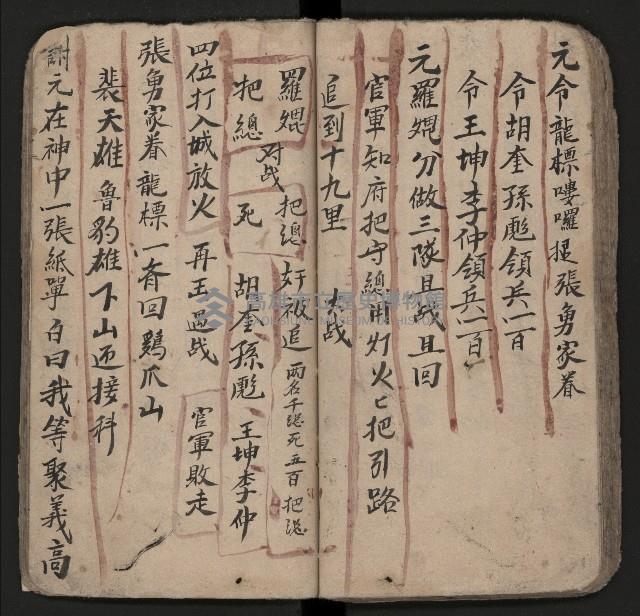 元令龍標嘍囉提張勇家眷
令胡奎孫彪領兵一百
令王坤李仲領兵一百
元羅焜分做三隊且战且回
官軍知府把守總用灯火匕把引路
追到十九里 大战
羅焜 对战 把總 奸被追 兩名千總死五百 把總
把總 死 胡奎孫彪 王坤李仲
四位打入城放火 再王過战 官軍敗走
張勇家眷龍標一齊回鷄爪山
裴天雄魯豹雄下山迎接科
謝元在神中一張紙單 白曰我等聚義高
高雄市立歷史博物館
KAOHSIUNG MUSEUM OF HISTORY